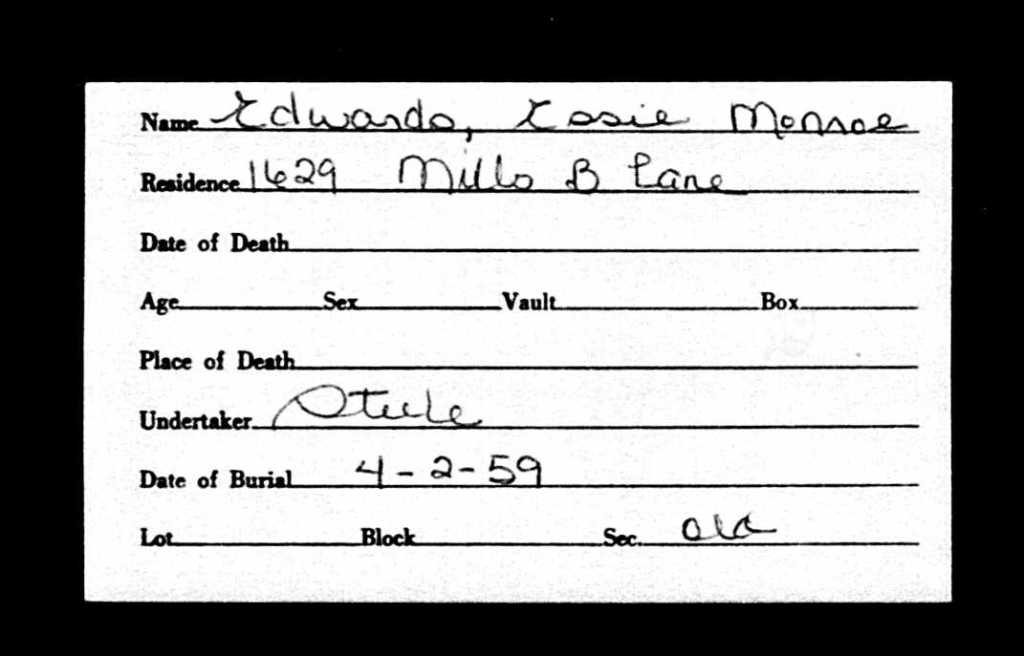 Name Edwards, Essie Monroe
Residence 1629 Mills B Lane
Date of Death
Age Sex Vault Box
Place of Death
Undertaker Steele
Date of Burial 4-2-59
Lot Block Sec. Old